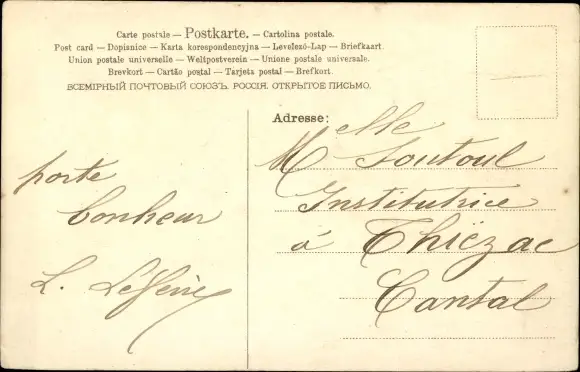 Carte postale — Postkarte. — Cartolina postale.
Post card — Dopisnice — Karta korespondencyjna — Levelező-Lap — Briefkaart.
Union postale universelle — Weltpostverein — Unione postale universale.
Brevkort — Cartão postal — Tarjeta postal — Brefkort.
ВСЕМІРНЫЙ ПОЧТОВЫЙ СОЮЗЪ. РОССІЯ. ОТКРЫТОЕ ПИСЬМО.
porte
bonheur
L.
Adresse:
Melle Soutoul
Institutrice
à Thiézac
Cantal